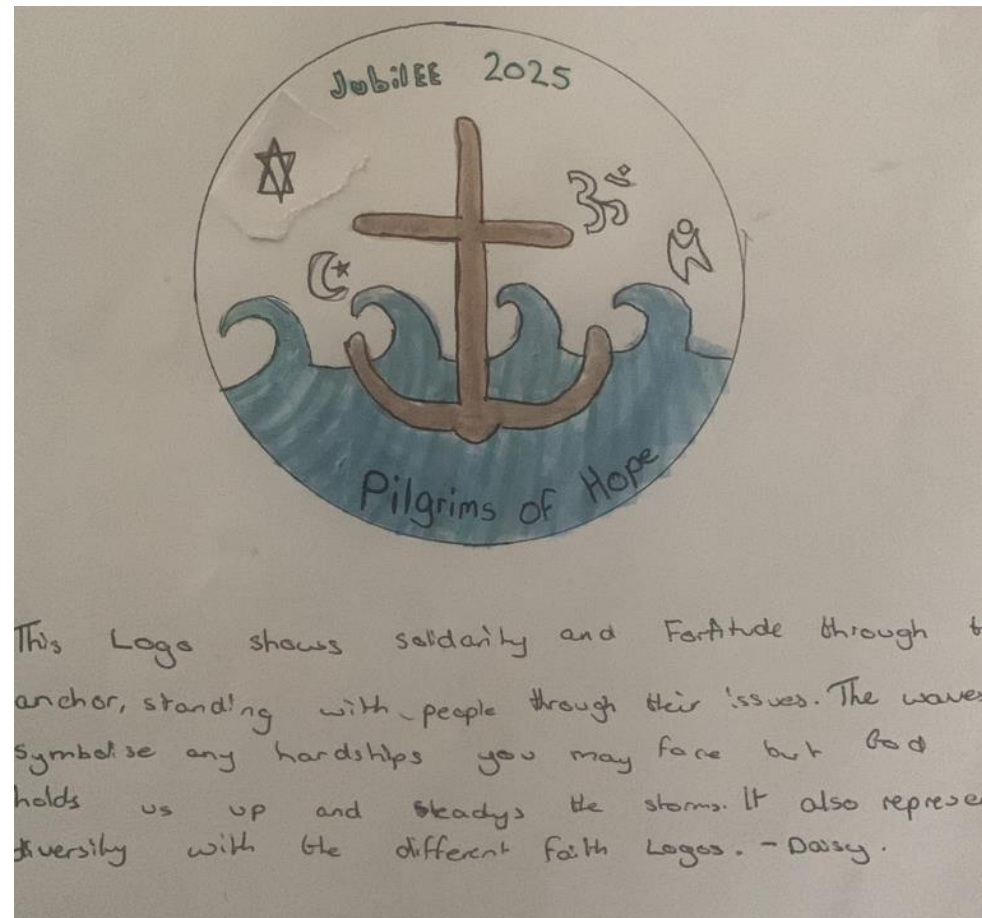 JubilEE 2025
ॐ
Pilgrims of Hope
This Logo shows solidarity and Fortitude through
anchor, standing with people through their issues. The waves
Symbolise any hardships you may face but God
holds us up and steadys the storms. It also represe
diversity with the different faith Logos. - Daisy.